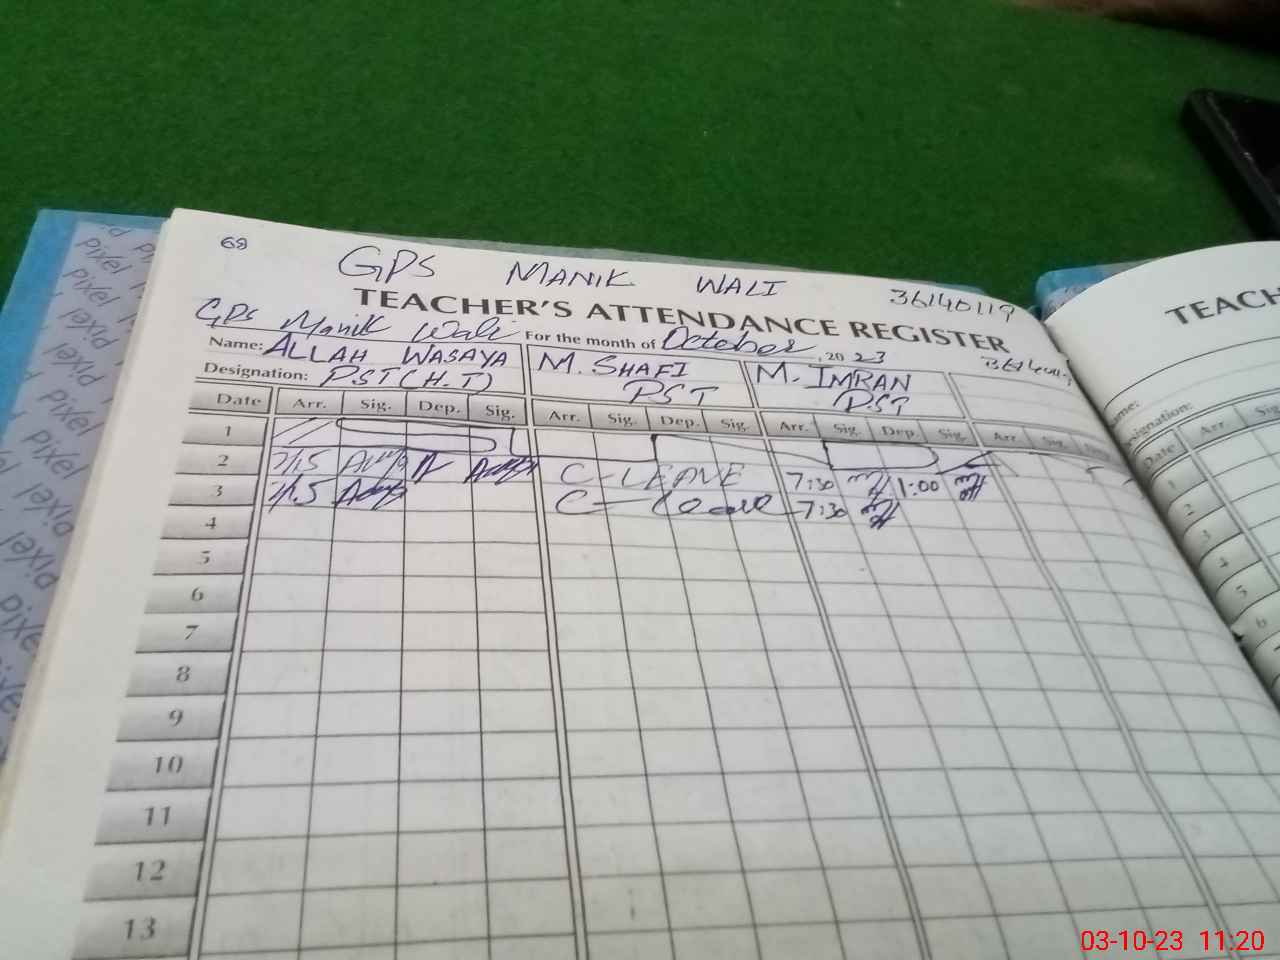 68
GPS MANIK WALI 36140119
TEACHER'S ATTENDANCE REGISTER
GPS Manik Wali For the month of October, 2023
Name: ALLAH WASAYA M. SHAFI M. IMRAN
Designation: PST (H.T) PST PST
Date Arr. Sig. Dep. Sig. Arr. Sig. Dep. Sig. Arr. Sig. Dep. Sig. Arr. Sig.
1
2 7/15 C-LEAVE 7:30 1:00
3 7/15 C-Leave 7:30
4
5
6
7
8
9
10
11
12
13
TEACH
Designation:
Date Arr.
1
2
3
4
5
6
pixel
03-10-23 11:20